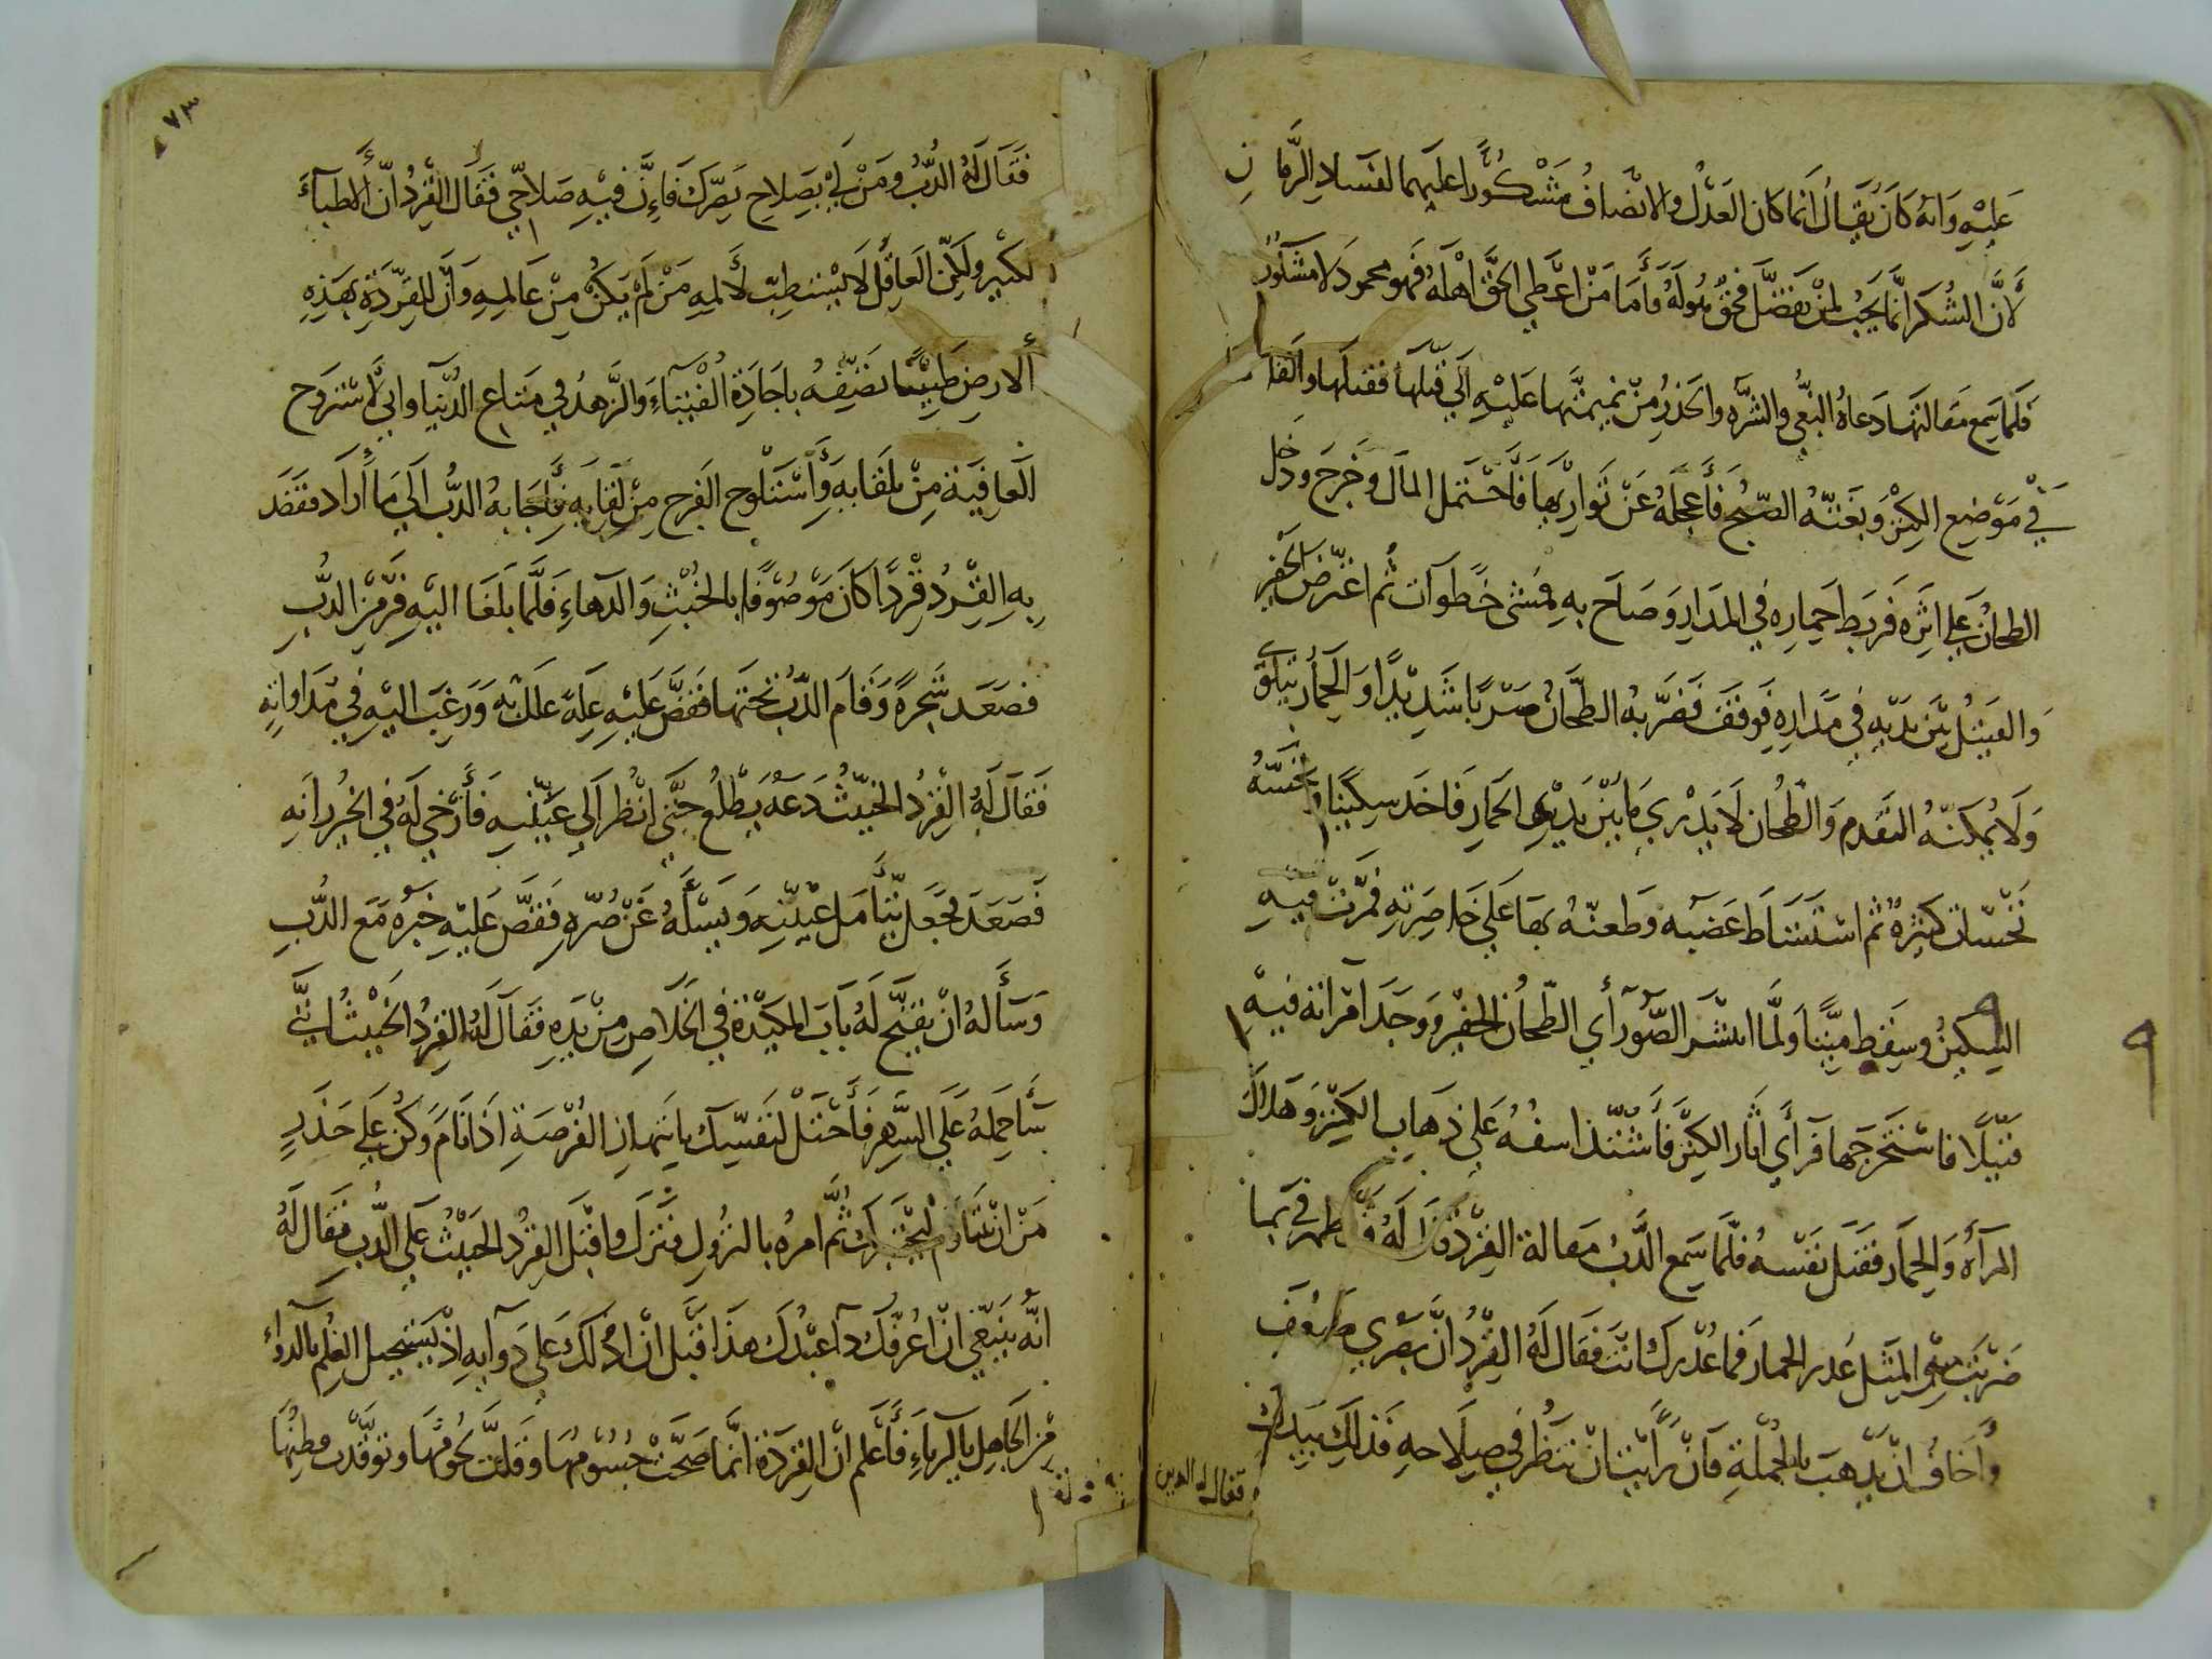 عليه وانه كان يقال انما كان العدل والانصاف مشكورا عليهما لفساد الزمان
لأن الشكر انما يجب لمن تفضل فحق موله وأما من اعطي الحق اهله فهو محمود لا مشكور
فلما سمع مقالتها دعاه البغي والشره والحذر من نميمتها عليه الي قتلها فقتلها والقاها
في موضع الكنز وبغته الصبح فأعجله عن تواريها فاحتمل المال وخرج ودخل
الطحان علي اثره فربط حماره في المدار وصاح به فمشى خطوات ثم اعترض الحفير
والقتيل بين يديه في مداره فوقف فضربه الطحان ضربا شديدا والحمار يتلوى
ولا يمكنه التقدم والطحان لا يدري ما بين يدي الحمار فاخذ سكينا ونخسه
نخسات كثيرة ثم استشاط غضبه وطعنه بها علي خاصرته فمرت فيه
السكين وسقط ميتا ولما انتشر الضو رأي الطحان الحفير ووجد امراته فيه
قتيلا فاستخرجها فرأي اثار الكنز فأشتد اسفه علي ذهاب الكنز وهلاك
المرآه والحمار فقتل نفسه فلما سمع الدب مقالة القرد قال له قد ظهر في بما
ضربت من المثل عذر الحمار فما عذرك انت فقال له القرد ان بصري ضعف
وأخاف ان يذهب بالجملة فان رأيت ان تنظر في صلاحه فذلك بيدك
فقال له الدب
٧٣
فقال له الدب ومن لي بصلاح بصرك فإن فيه صلاحي فقال القرد ان الأطباء
لكثير ولكن العاقل لا يستطب لألمه من لم يكن من عالمه وان للقردة بهذه
ألارض طبيبا نضيفه باجادة الفتياء والزهد في متاع الدنيا واني لأستروح
العافية من تلقابه وأستلوح الفرج من لقابه فاجابه الدب الي ما أراد فقصد
به القرد قردا كان موصوفا بالخبث والدهاء فلما بلغا اليه فر من الدب
فصعد شجرة وقام الدب تحتها فقص عليه علة علك به ورغب اليه في مداواته
فقال له القرد الخبيث دعه يطلع حتى انظر الي عينيه فأرخي له في الخررانه
فصعد فجعل يتأمل عينيه ويسأله عن ضره فقص عليه خبره مع الدب
وسأله ان يفتح له باب المكيدة في الخلاص من يده فقال له القرد الخبيث انني
سأحمله علي السهر فأحتل لنفسك بانتهاز الفرصة اذا نام وكن علي حذر
من ان يتناوم ليختبرك ثم امره بالنزول فنزل واقبل القرد الخبيث علي الدب فقال له
انه ينبغي ان اعرفك دآ عبدك هذا قبل ان ادلك علي دوايه اذ يستحيل العلم بالدواء
من الجاهل بالدآء فأعلم ان القردة انما صحت جسومها وقلت لحومها وتوقدت فطنها